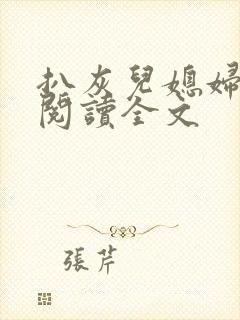 扒灰兒媳婦
閱讀全文
張芹